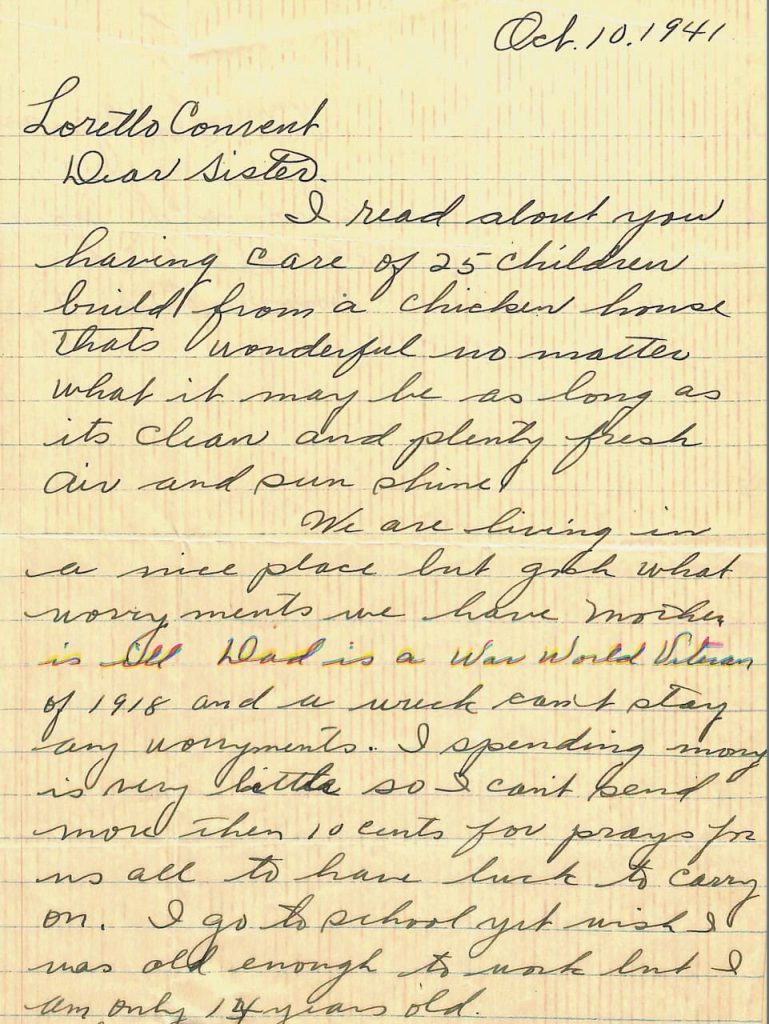 Oct. 10. 1941
Loretto Convent
Dear Sister.
I read about you
having care of 25 children
build from a chicken house
thats wonderful no matter
what it may be as long as
its clean and plenty fresh
air and sun shine.
We are living in
a nice place but gosh what
worryments we have Mother
is ill Dad is a War World Viteran
of 1918 and a wreck can't stay
any worryments. I spending mony
is very little so I can't send
more then 10 cents for prays for
us all to have luck to carry
on. I go to school yet wish I
was old enough to work but I
am only 14 years old.